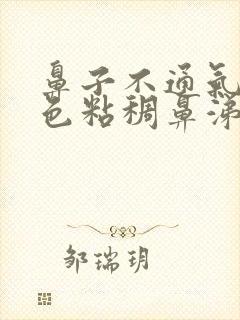 鼻子不通氣
色粘稠鼻涕
邹瑞玥